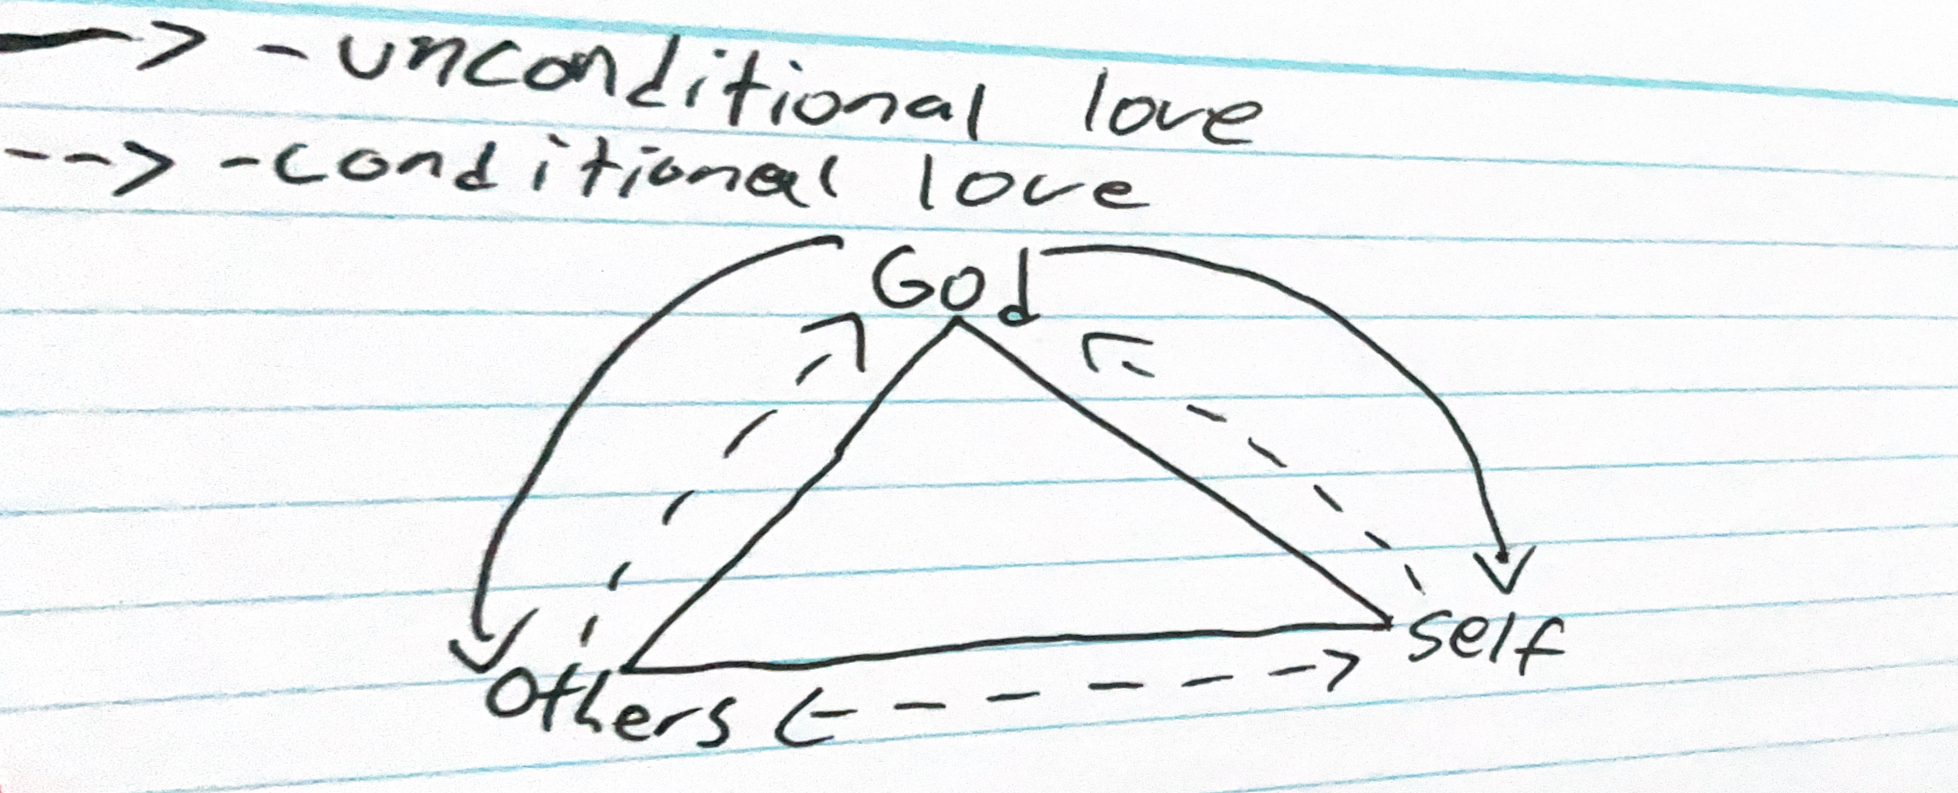 —> - unconditional love
--> - conditional love
God
Others <- - - - -> self